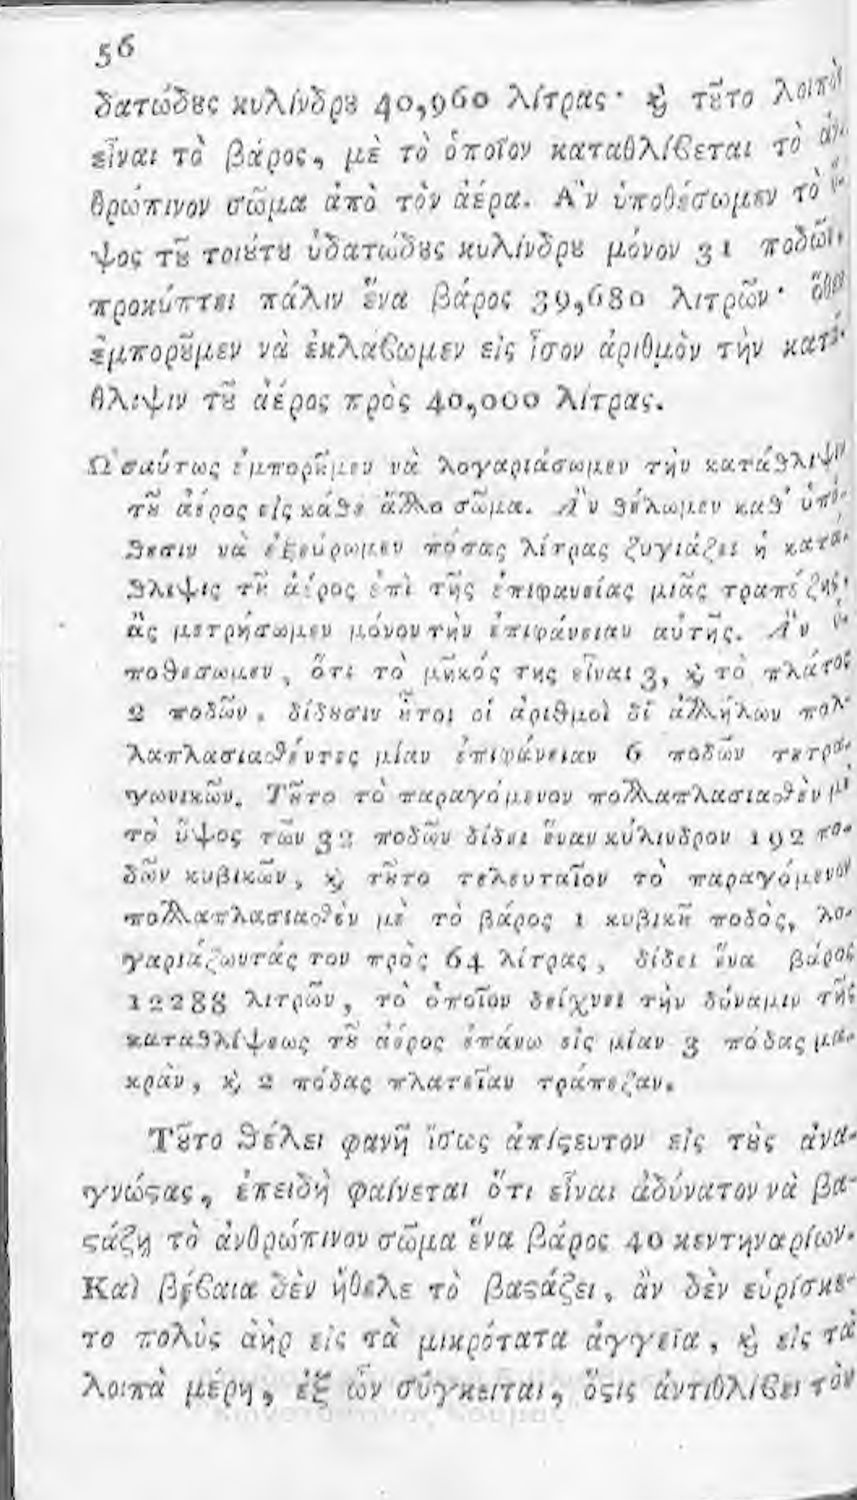 56
δατώδȣς κυλίνδρȣ 40,960 λίτρας· ϗ τȣ͂το λοιπὸ
εἶναι τὸ βάρος, μὲ τὸ ὁποῖον καταθλίϐεται τὸ ἀν-
θρώπινον σῶμα ἀπὸ τὸν ἀέρα. Α῍ν ὑποθέσωμεν τὸ ὕ-
ψος τȣ͂ τοιȣ́τȣ ὑδατώδȣς κυλίνδρȣ μόνον 31 ποδῶν,
προκύπτει πάλιν ἕνα βάρος 39,680 λιτρῶν· ὅθεν
ἐμπορȣ͂μεν νὰ ἐκλάϐωμεν εἰς ἴσον ἀριθμὸν τὴν κατά-
θλιψιν τȣ͂ ἀέρος πρὸς 40,000 λίτρας.
Ω῾σαύτως ἐμπορȣ͂μεν νὰ λογαριάσωμεν τὴν κατάθλιψιν
τȣ͂ ἀέρος εἰς κάθε ἄλλο σῶμα. Α῍ν θέλωμεν καθ' ὑπό-
θεσιν νὰ ἐξεύρωμεν πόσας λίτρας ζυγιάζει ἡ κατά-
θλιψις τȣ͂ ἀέρος ἐπὶ τῆς ἐπιφανείας μιᾶς τραπέζης,
ἂς μετρήσωμεν μόνον τὴν ἐπιφάνειαν αὐτῆς. Α῍ν ὑ-
ποθέσωμεν, ὅτι τὸ μῆκός της εἶναι 3, ϗ τὸ πλάτος
2 ποδῶν, δίδȣσιν ἤτοι οἱ ἀριθμοὶ δἰ ἀλλήλων πολ-
λαπλασιασθέντες μίαν ἐπιφάνειαν 6 ποδῶν τετρα-
γωνικῶν. Τȣ͂το τὸ παραγόμενον πολλαπλασιασθὲν μὲ
τὸ ὕψος τῶν 32 ποδῶν δίδει ἕναν κύλινδρον 192 πο-
δῶν κυβικῶν, ϗ τȣ͂το τελευταῖον τὸ παραγόμενον
πολλαπλασιασθὲν μὲ τὸ βάρος 1 κυβικȣ͂ ποδὸς, λο-
γαριάζωντάς τον πρὸς 64 λίτρας, δίδει ἕνα βάρος
12288 λιτρῶν, τὸ ὁποῖον δείχνει τὴν δύναμιν τῆς
καταθλίψεως τȣ͂ ἀέρος ἐπάνω εἰς μίαν 3 πόδας μα-
κρὰν, ϗ 2 πόδας πλατεῖαν τράπεζαν.
Τȣ͂το θέλει φανῆ ἴσως ἀπίϛευτον εἰς τȣ̀ς ἀνα-
γνώϛας, ἐπειδὴ φαίνεται ὅτι εἶναι ἀδύνατον νὰ βα-
ϛάζῃ τὸ ἀνθρώπινον σῶμα ἕνα βάρος 40 κεντηναρίων.
Καὶ βέϐαια δὲν ἤθελε τὸ βαϛάζει, ἂν δὲν εὑρίσκε-
το πολὺς ἀὴρ εἰς τὰ μικρότατα ἀγγεῖα, ϗ εἰς τὰ
λοιπὰ μέρη, ἐξ ὧν σύγκειται, ὅϛις ἀντιθλίϐει τὸν